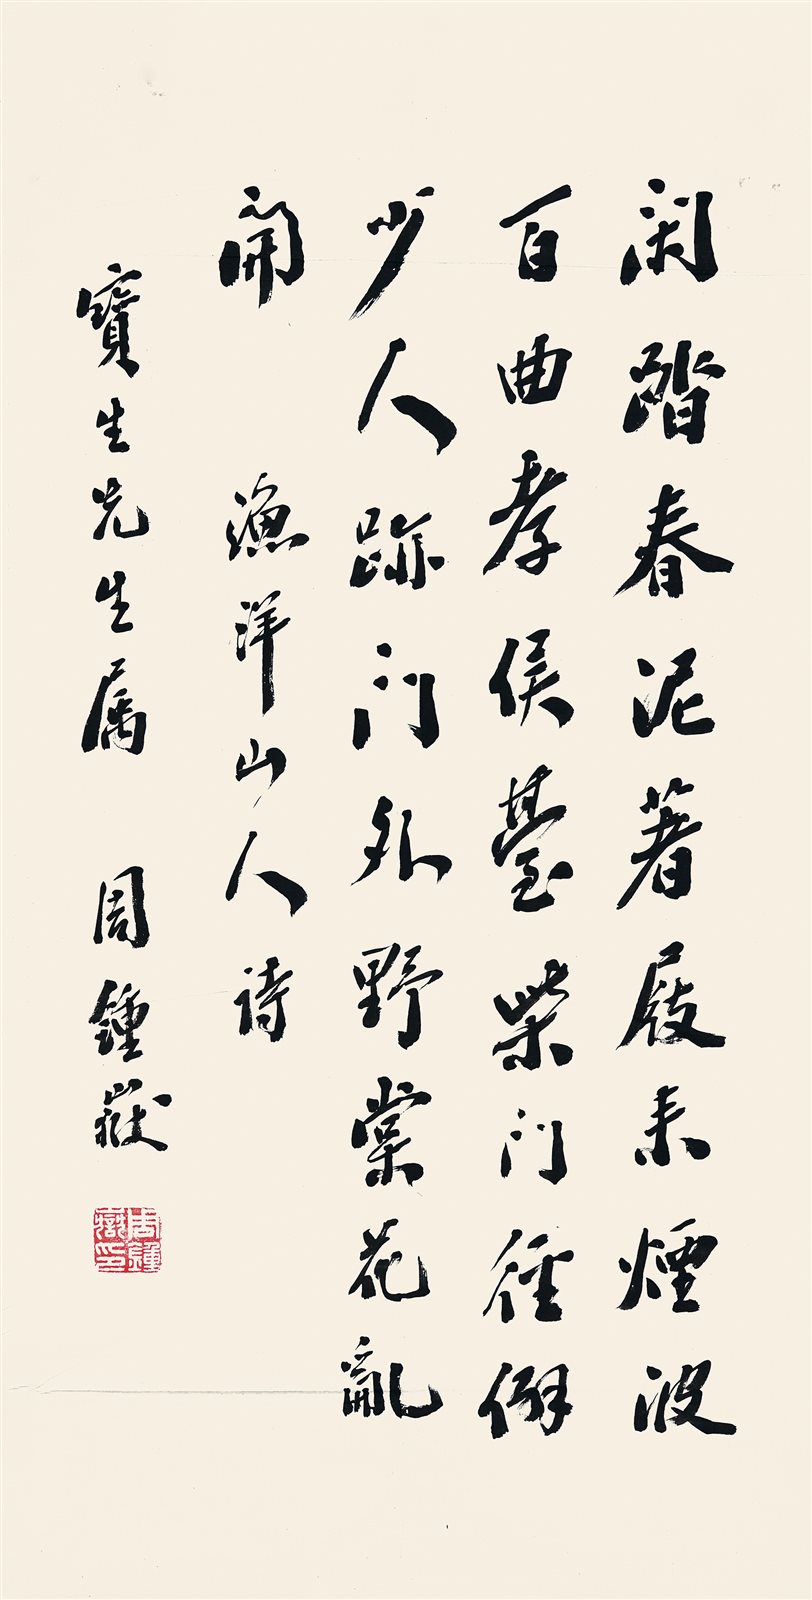 閑踏春泥著屐來煙波
百曲孝侯臺柴門徑僻
少人跡門外野棠花亂
開 漁洋山人詩
寶生先生属 周鍾嶽
周鍾嶽印